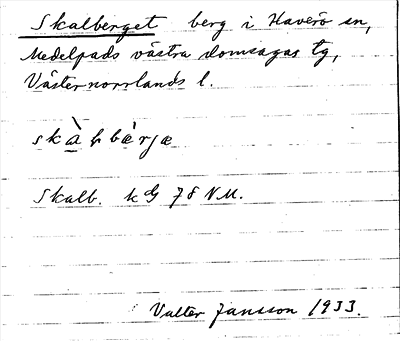 Skalberget berg i Haverö sn,
Medelpads västra domsagas tg,
Västernorrlands l.
skàḷbæ̀rjæ
Skalb. kG 78 NM.
Valter Jansson 1933.